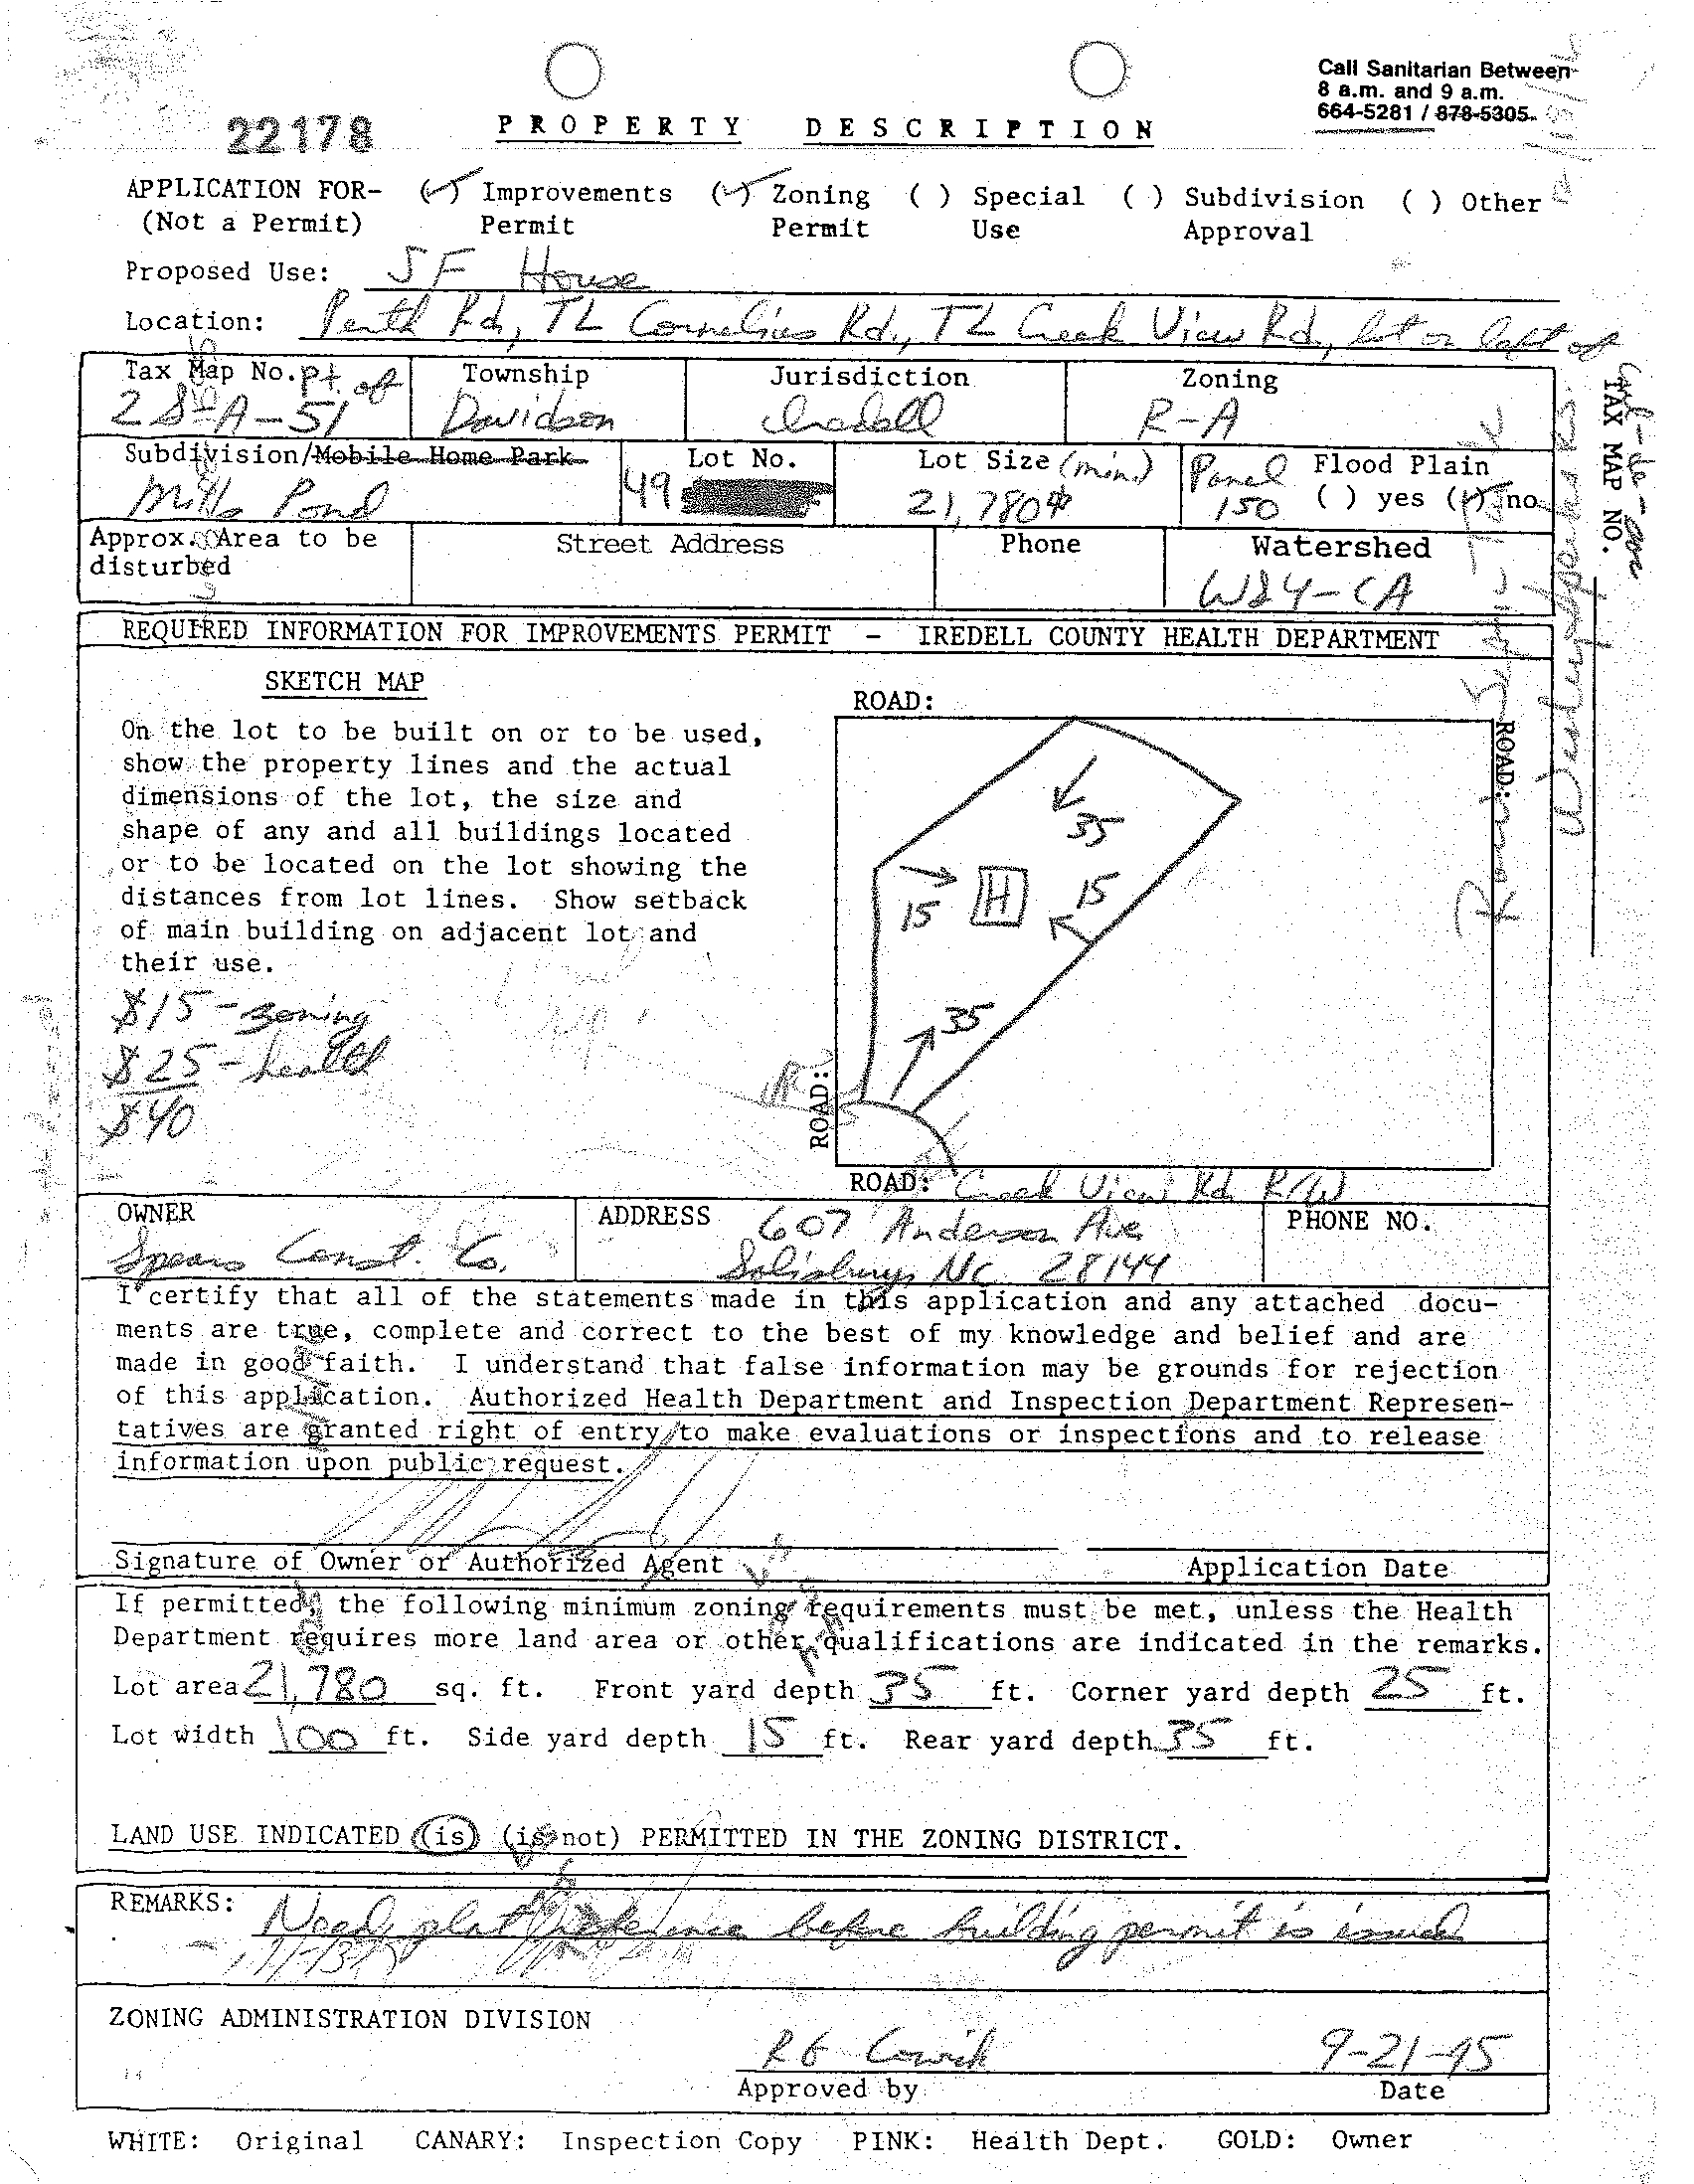 Call Sanitarian Between
8 a.m. and 9 a.m.
664-5281 / 878-5305
22178
PROPERTY DESCRIPTION
APPLICATION FOR- (✓) Improvements (✓) Zoning ( ) Special ( ) Subdivision ( ) Other
(Not a Permit) Permit Permit Use Approval
Proposed Use: SF House
Location: Perth Rd, TL Cornelius Rd., TL Creek View Rd, lot on left of
cul-de-sac
TAX MAP NO.
Tax Map No. Pt of Township Jurisdiction Zoning
A-51 Davidson Iredell R-A
Subdivision/Mobile Home Park Lot No. Lot Size (min) Panel Flood Plain
Mills Pond 49 21,780 150 ( ) yes (✓) no
Approx. Area to be Street Address Phone Watershed
disturbed
WS4-CA
REQUIRED INFORMATION FOR IMPROVEMENTS PERMIT - IREDELL COUNTY HEALTH DEPARTMENT
SKETCH MAP
ROAD:
On the lot to be built on or to be used,
show the property lines and the actual
dimensions of the lot, the size and
shape of any and all buildings located
or to be located on the lot showing the
distances from lot lines. Show setback
of main building on adjacent lot and
their use.
$15 - zoning
$25 - health
$40
35
15 H 15
35
ROAD:
ROAD:
ROAD: Creek View Rd R/W
OWNER ADDRESS 607 Anderson Ave PHONE NO.
Spears Const. Co. Salisbury NC 28144
I certify that all of the statements made in this application and any attached docu-
ments are true, complete and correct to the best of my knowledge and belief and are
made in good faith. I understand that false information may be grounds for rejection
of this application. Authorized Health Department and Inspection Department Represen-
tatives are granted right of entry to make evaluations or inspections and to release
information upon public request.
Signature of Owner or Authorized Agent Application Date
If permitted, the following minimum zoning requirements must be met, unless the Health
Department requires more land area or other qualifications are indicated in the remarks.
Lot area 21,780 sq. ft. Front yard depth 35 ft. Corner yard depth 25 ft.
Lot width 100 ft. Side yard depth 15 ft. Rear yard depth 35 ft.
LAND USE INDICATED (is) (is not) PERMITTED IN THE ZONING DISTRICT.
REMARKS: Need plat before building permit is issued
ZONING ADMINISTRATION DIVISION
9-21-95
Approved by Date
WHITE: Original CANARY: Inspection Copy PINK: Health Dept. GOLD: Owner